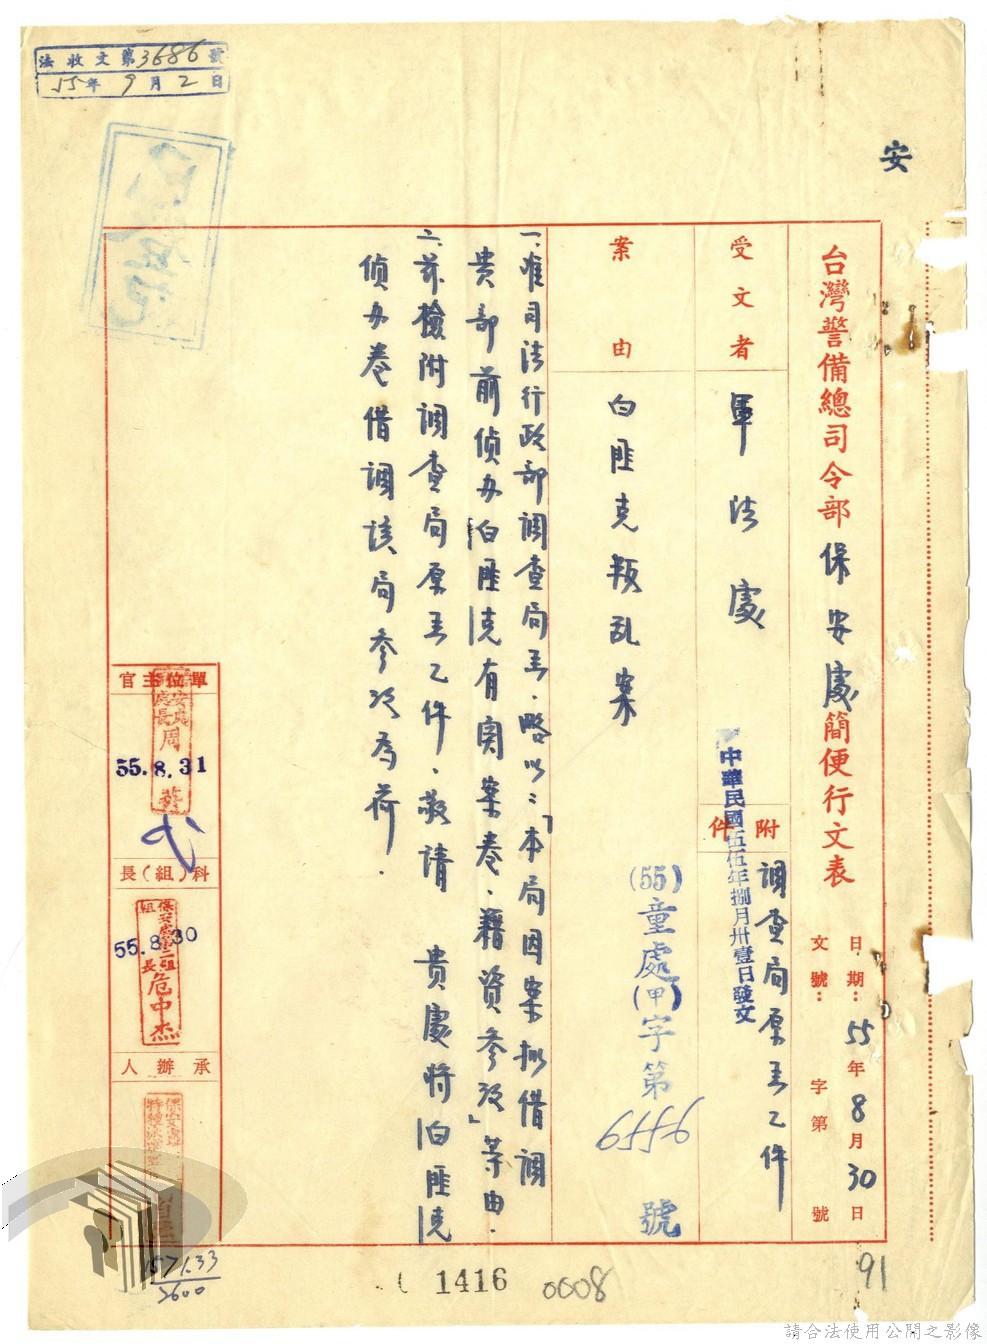 法收文第3686號
55年9月2日
安
台灣警備總司令部保安處簡便行文表
日期：55年8月30日
文號：　字第　號
受文者
軍法處
附件
調查局原函乙件
中華民國伍伍年捌月卅壹日發文
案由
白匪克叛乱案
(55)童處(甲)字第6556號
一、准司法行政部調查局函、略以：「本局因案拟借調
貴部前偵办白匪克有関案卷、藉資参攷」等由．
二、茲檢附調查局原函乙件、敬請　貴處将白匪克
偵办卷借調該局参攷為荷．
單位主官
55.8.31
科(組)長
保安處第二組組長危中杰
55.8.30
承辦人
1571.33
2600
1416
0008
91
請合法使用公開之影像